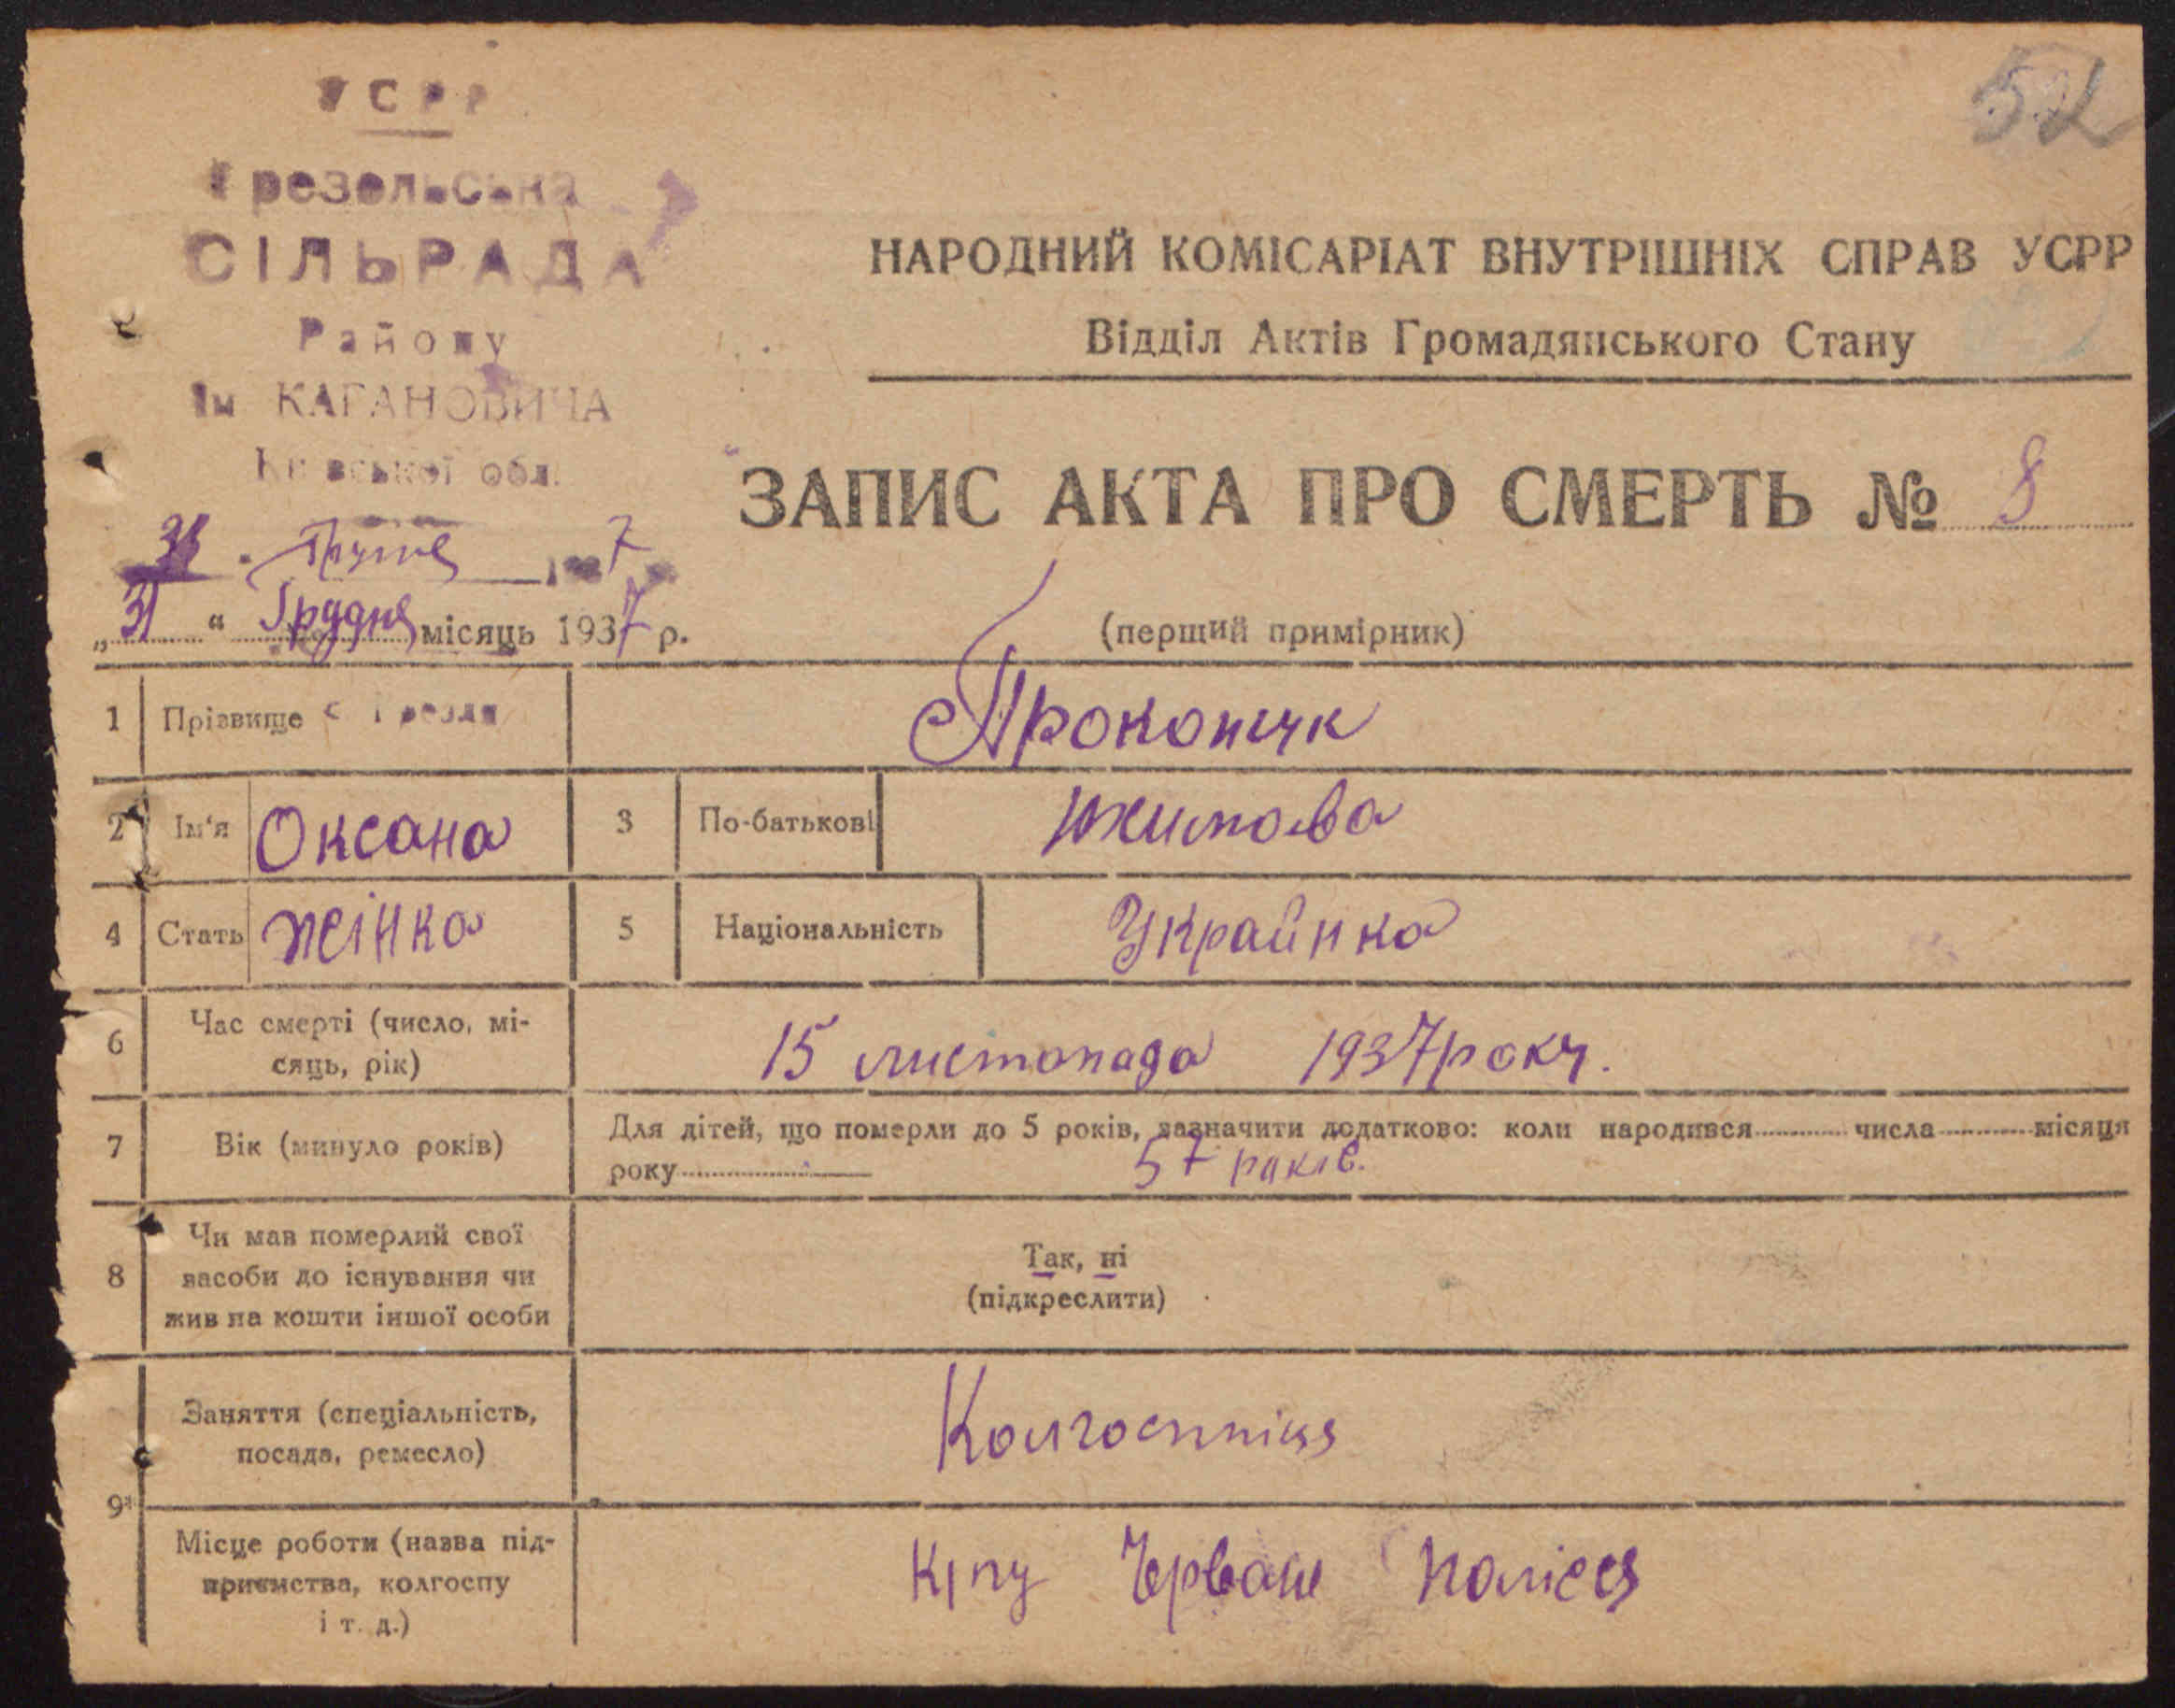 52
УСРР
Грезельська
СІЛЬРАДА
Району
Ім КАГАНОВИЧА
Київської обл.
НАРОДНИЙ КОМІСАРІАТ ВНУТРІШНІХ СПРАВ УСРР
Відділ Актів Громадянського Стану
ЗАПИС АКТА ПРО СМЕРТЬ № 8
(перший примірник)
31 7
„31“ Грудня місяць 1937 р.
1 Прізвище Прокопчук
2 Ім'я Оксана 3 По-батькові
4 Стать жінка 5 Національність Украйнка
6 Час смерті (число, мі-
сяць, рік) 15 листопада 1937 року.
7 Вік (минуло років) Для дітей, що померли до 5 років, зазначити додатково: коли народився числа місяця
року 57 років.
8 Чи мав померлий свої
засоби до існування чи
жив на кошти іншої особи
Так, ні
(підкреслити)
9 Заняття (спеціальність,
посада, ремесло) Колгоспніця
Місце роботи (назва під-
приємства, колгоспу
і т. д.) Полісся